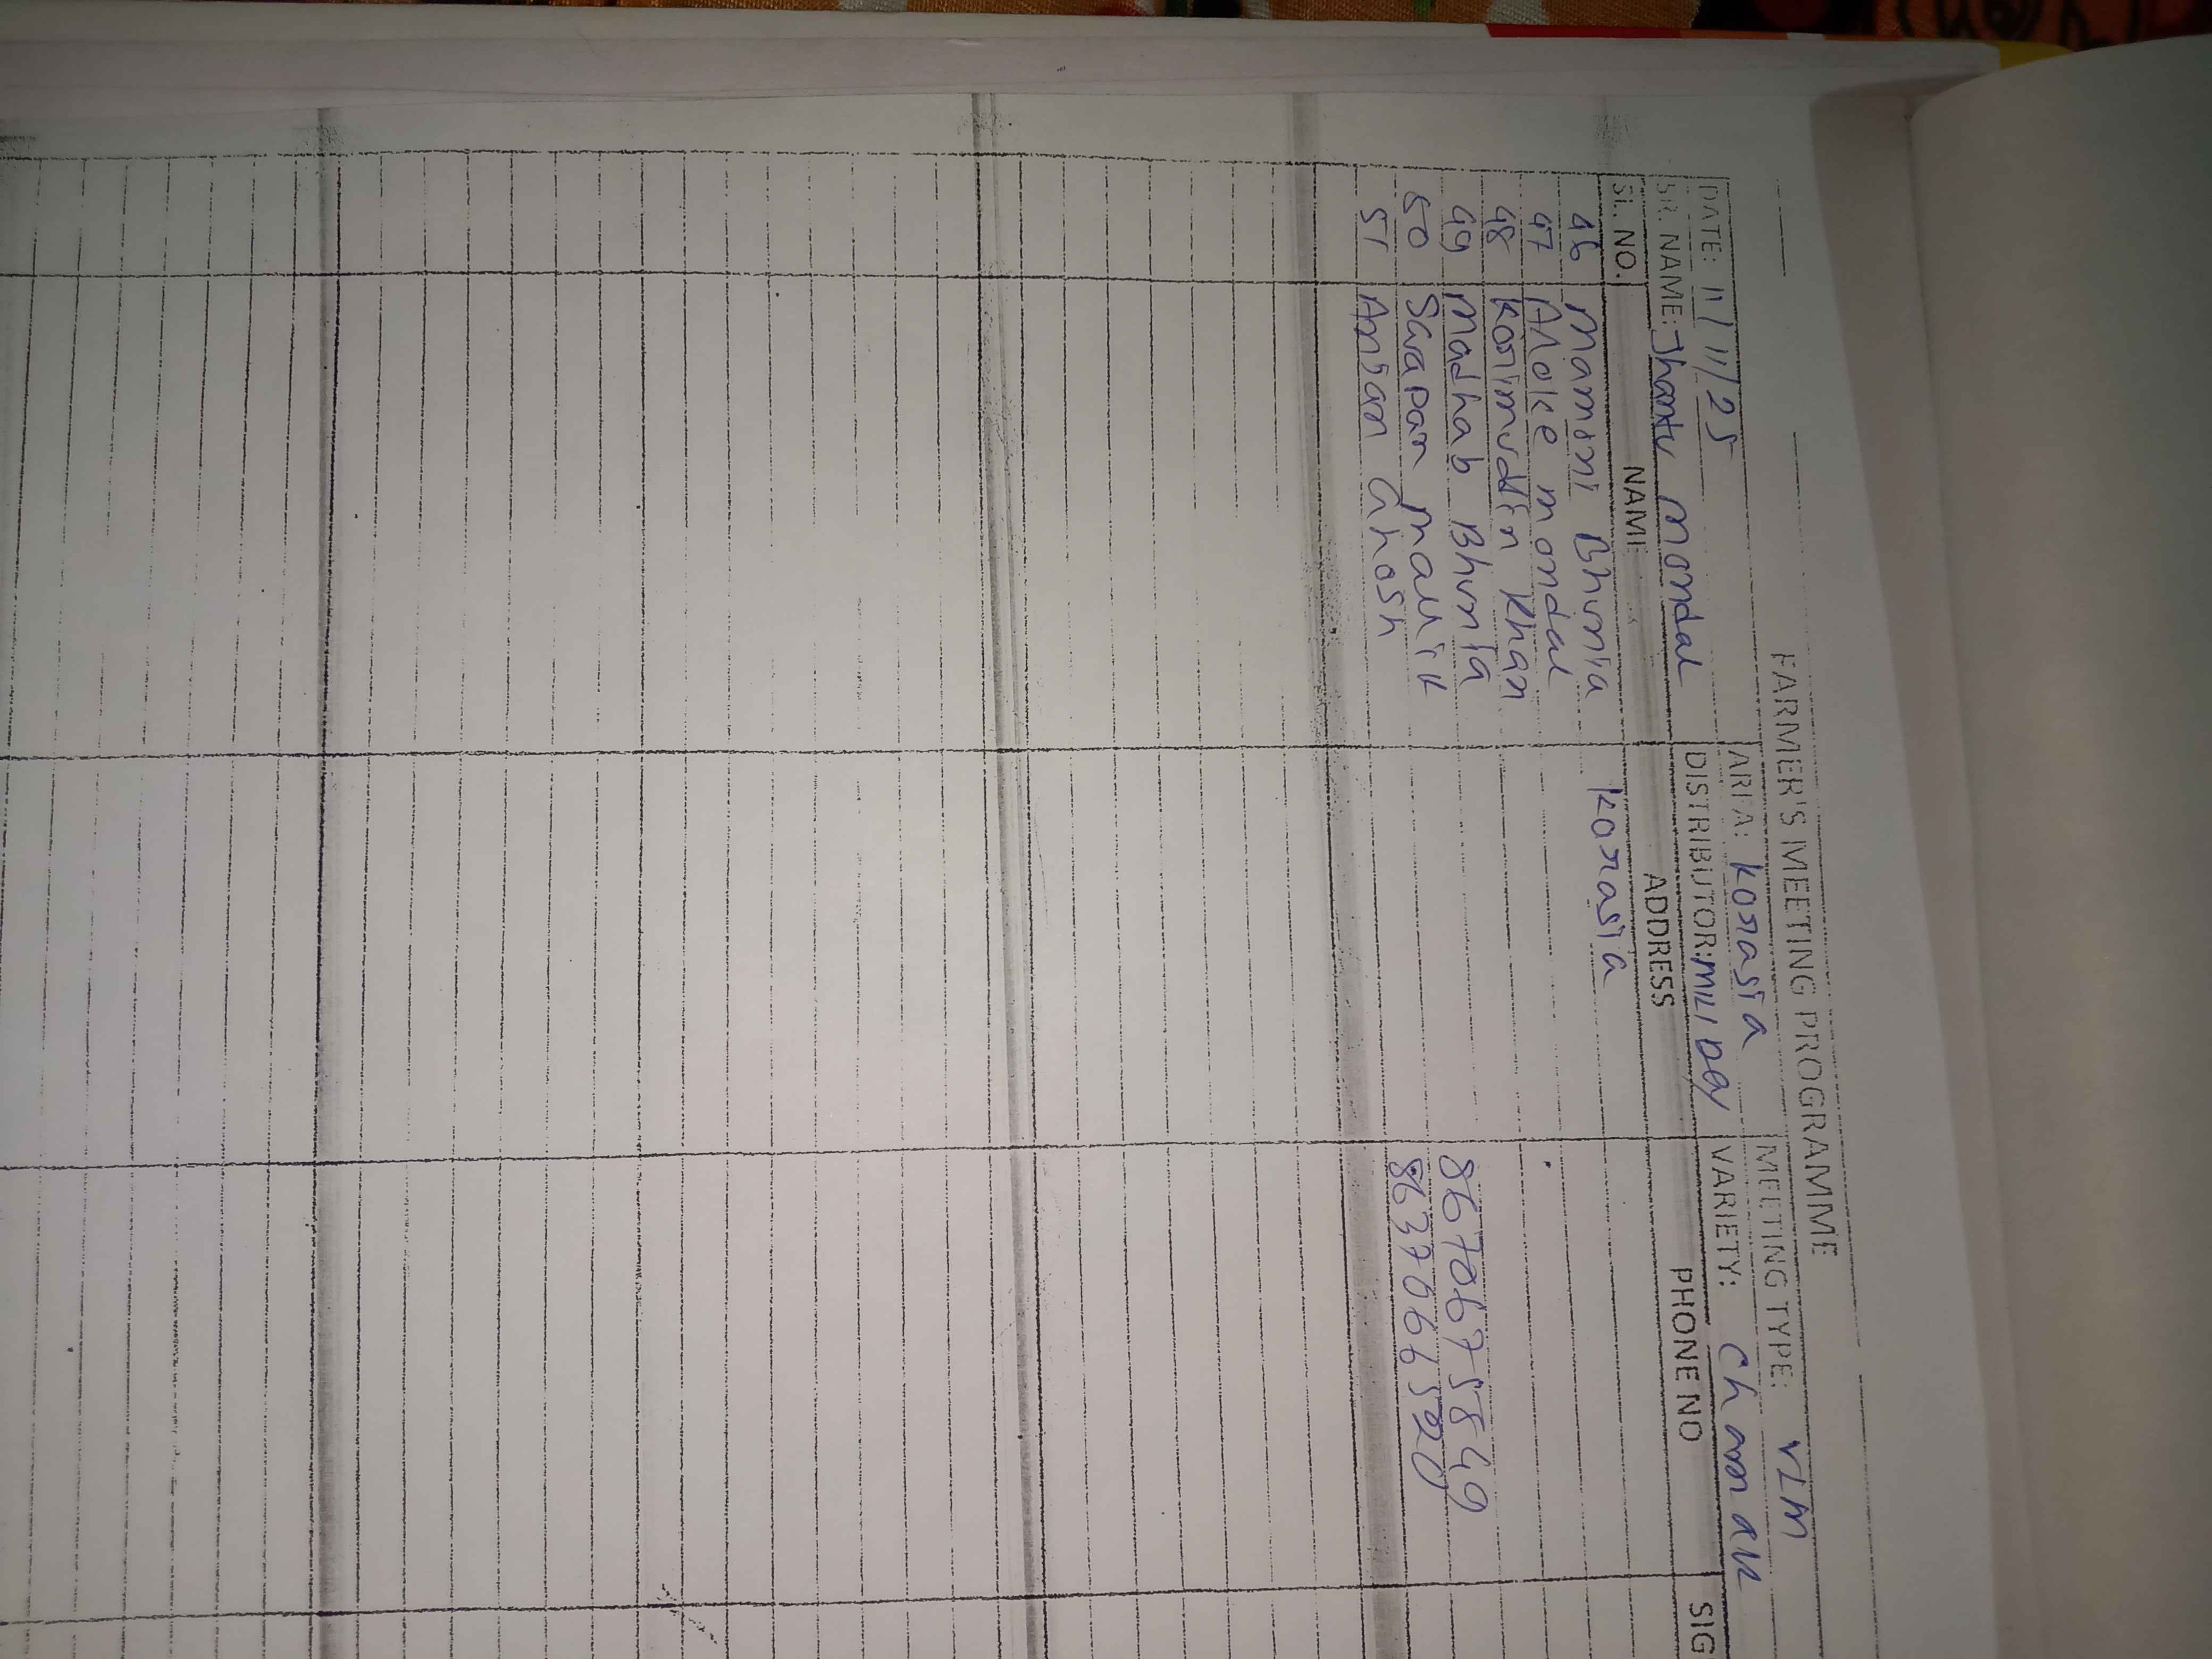 FARMER'S MEETING PROGRAMME
DATE: 11/11/25 AREA: Korasia MEETING TYPE: VLM
SR. NAME: Jhantu mondal DISTRIBUTOR: mili Dey VARIETY:
SL. NO. NAME ADDRESS PHONE NO SIG
46 Mamoni Bhunia Korasia
47 Aloke mondal
48 Korimuddin Khan
49 Madhab Bhunia
50 Sarapan Mallik 8670675849
51 Anjan Ghosh 8637066520